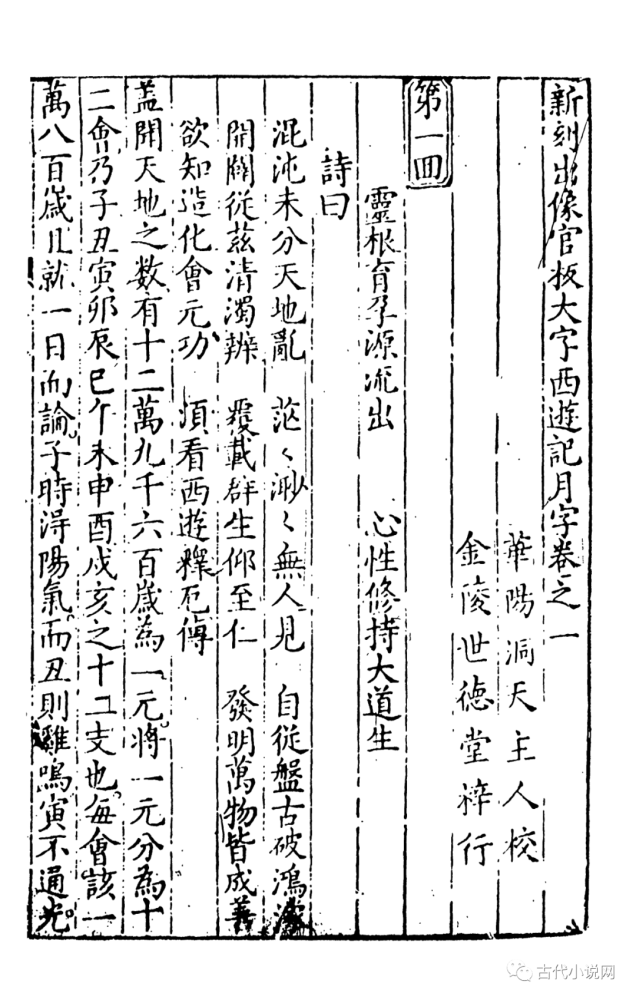 新刻出像官板大字西遊記月字卷之一
華陽洞天主人校
金陵世德堂梓行
第一回
靈根育孕源流出 心性修持大道生
詩曰
混沌未分天地亂 茫々渺々無人見 自從盤古破鴻濛
開闢從茲清濁辨 覆載群生仰至仁 發明萬物皆成善
欲知造化會元功 須看西遊釋厄傳
盖聞天地之数有十二萬九千六百歲為一元。將一元分為十
二會乃子丑寅卯辰巳午未申酉戌亥之十二支也。每會該一
萬八百歲且就一日而論。子時得陽氣。而丑則雞鳴寅不通光。
古代小说网